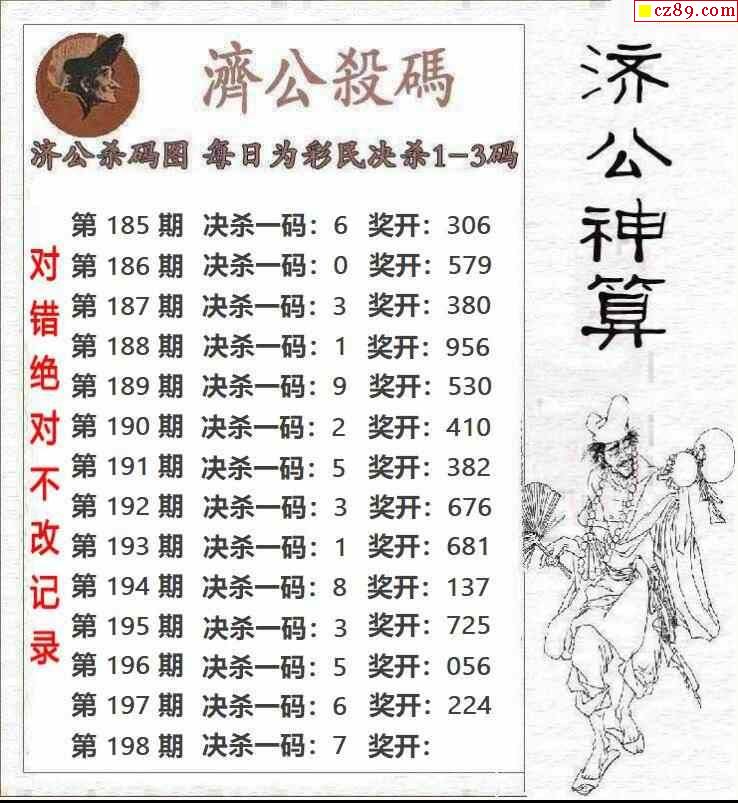 cz89.com
濟公殺碼
济公杀码图 每日为彩民决杀1-3码
第 185 期 决杀一码：6 奖开：306
第 186 期 决杀一码：0 奖开：579
第 187 期 决杀一码：3 奖开：380
第 188 期 决杀一码：1 奖开：956
第 189 期 决杀一码：9 奖开：530
第 190 期 决杀一码：2 奖开：410
第 191 期 决杀一码：5 奖开：382
第 192 期 决杀一码：3 奖开：676
第 193 期 决杀一码：1 奖开：681
第 194 期 决杀一码：8 奖开：137
第 195 期 决杀一码：3 奖开：725
第 196 期 决杀一码：5 奖开：056
第 197 期 决杀一码：6 奖开：224
第 198 期 决杀一码：7 奖开：
对错绝对不改记录
济公神算